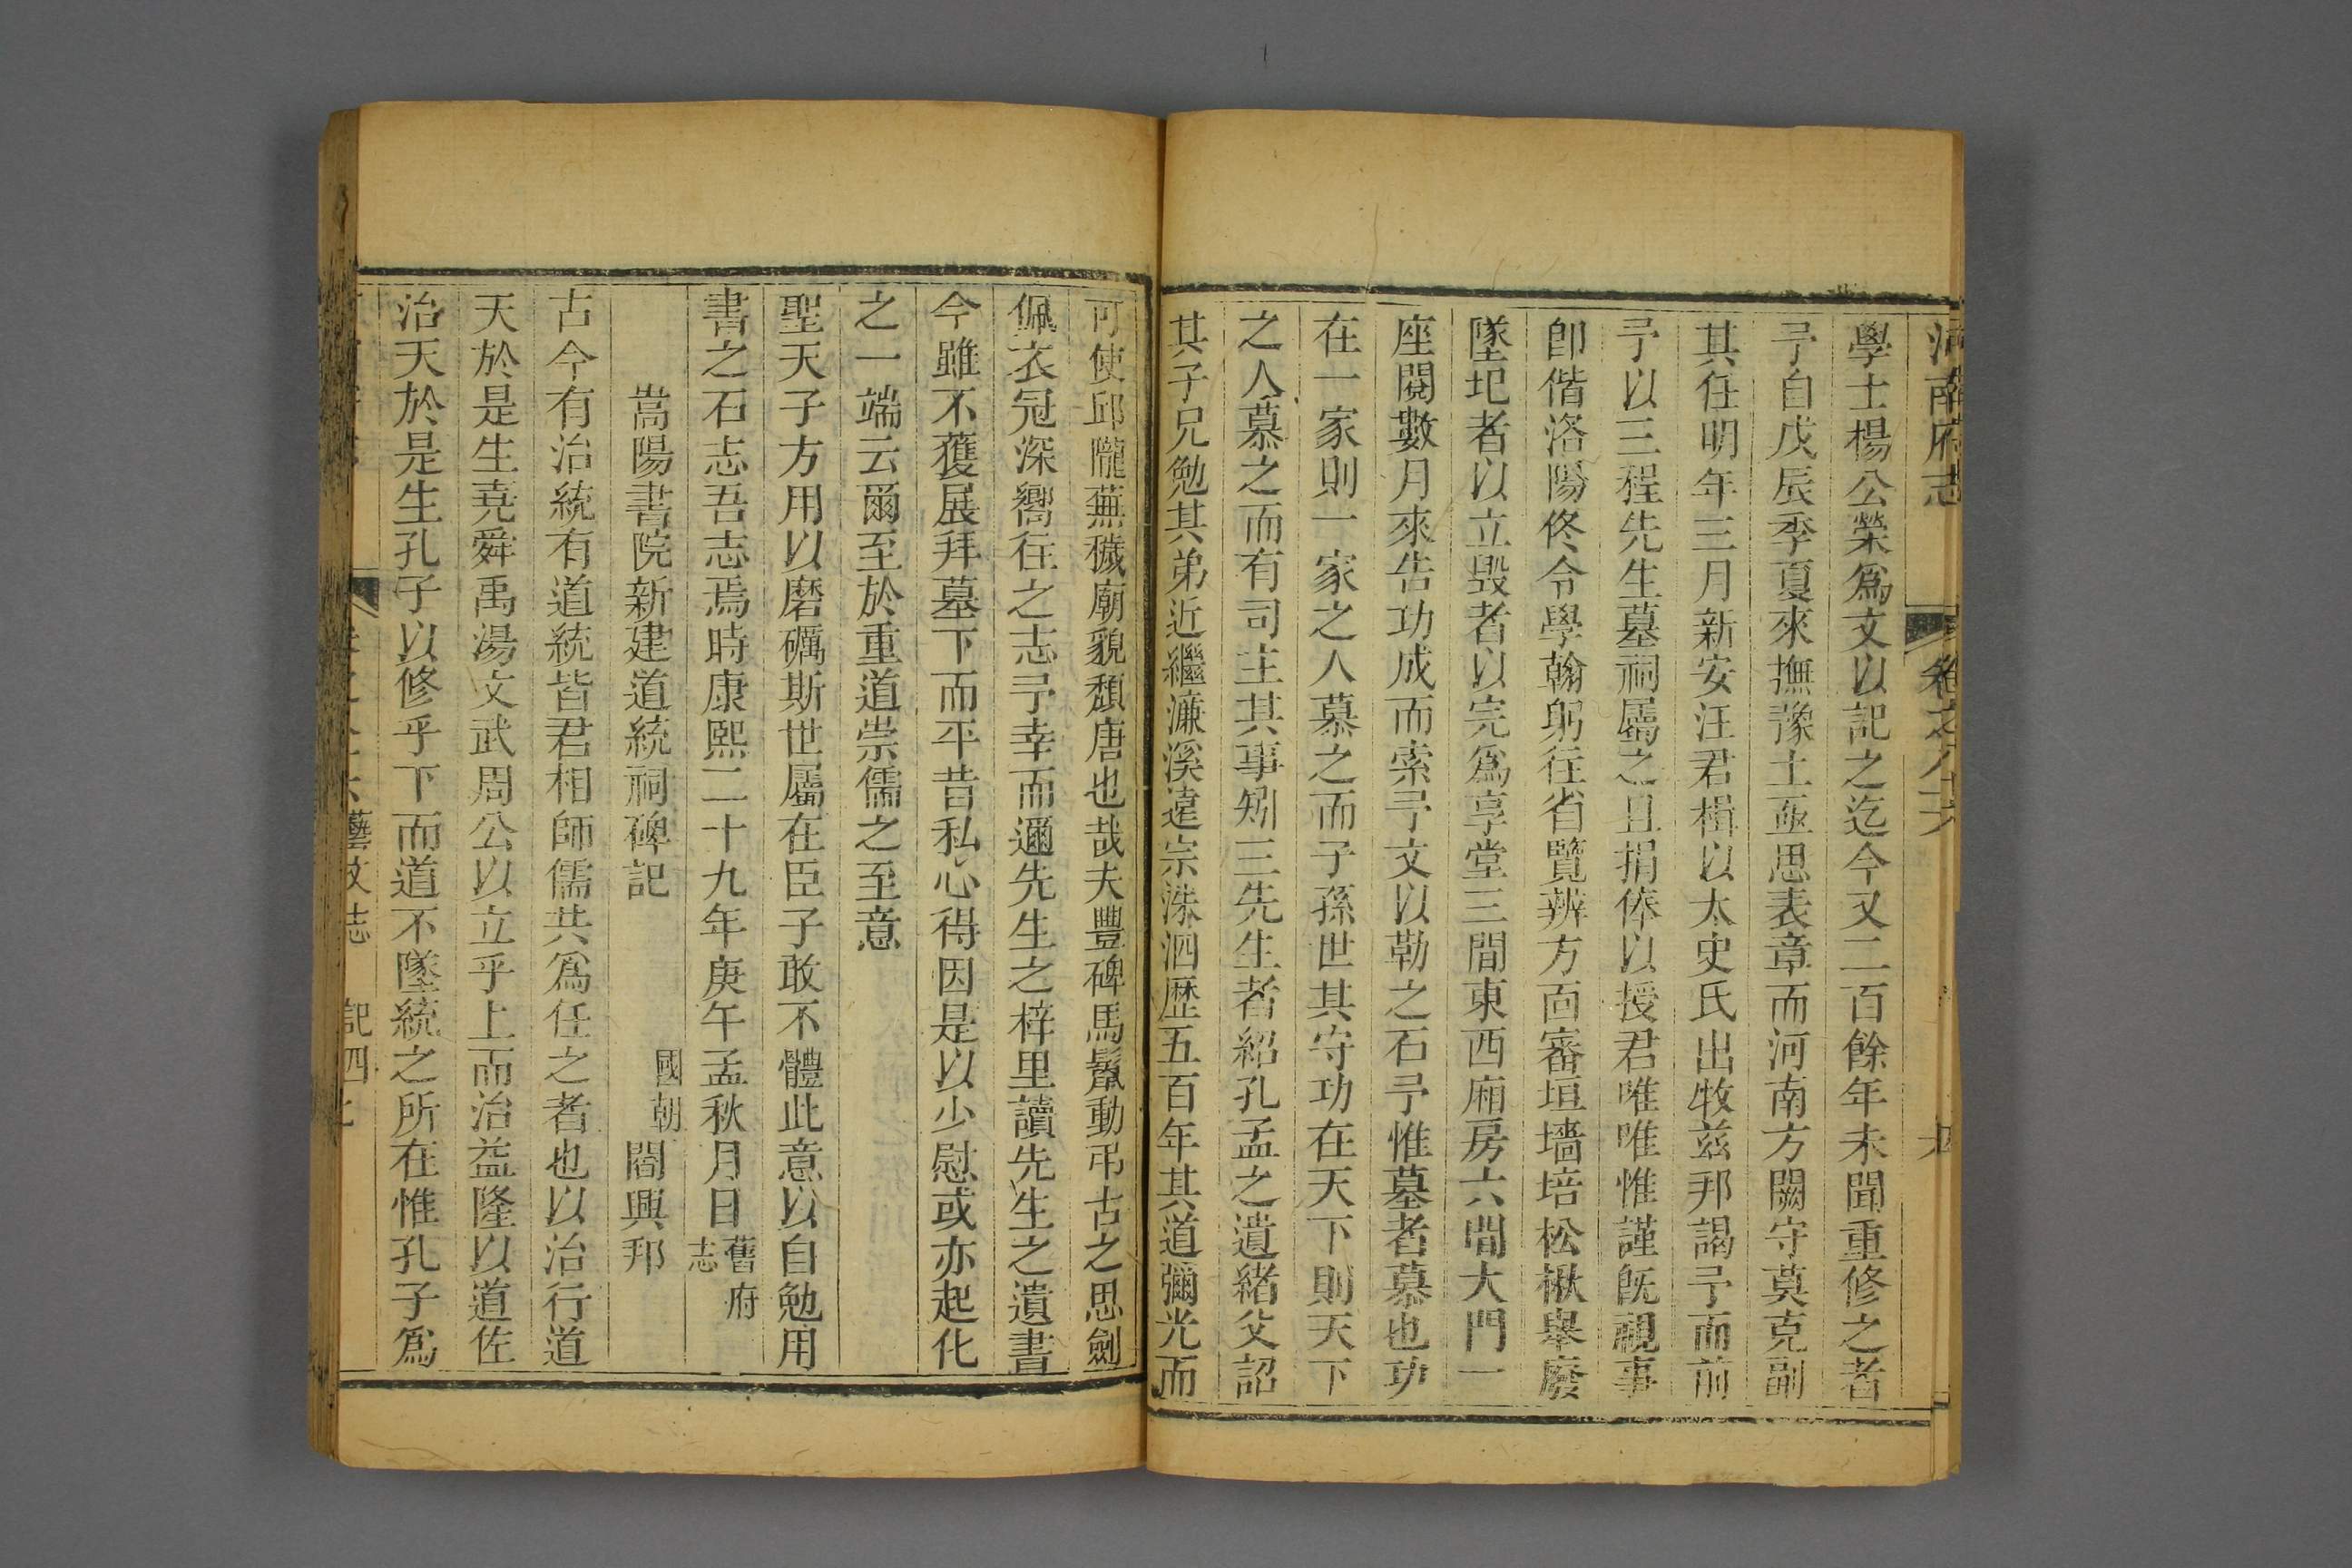 河南府志 卷之八十六
學士楊公榮爲文以記之迄今又二百餘年未聞重修之者
予自戊辰季夏來撫豫土亟思表章而河南方闕守莫克副
其任明年三月新安汪君楫以太史氏出牧茲邦謁予而前
予以三程先生墓祠屬之且捐俸以授君唯唯惟謹旣視事
卽偕洛陽佟令學翰躬往省覽辨方面審垣墻培松楸舉廢
墜圯者以立毀者以完爲享堂三間東西廂房六間大門一
座閱數月來告功成而索予文以勒之石予惟墓者慕也功
在一家則一家之人慕之而子孫世其守功在天下則天下
之人慕之而有司主其事矧三先生者紹孔孟之遺緒父詔
其子兄勉其弟近繼濂溪遠宗洙泗歷五百年其道彌光而
可使邱隴蕪穢廟貌頽唐也哉夫豐碑馬鬛動弔古之思劍
佩衣冠深嚮往之志予幸而邇先生之梓里讀先生之遺書
今雖不獲展拜墓下而平昔私心得因是以少慰或亦起化
之一端云爾至於重道崇儒之至意
聖天子方用以磨礪斯世屬在臣子敢不體此意以自勉用
書之石志吾志焉時康熙二十九年庚午孟秋月日舊府志
嵩陽書院新建道統祠碑記 國朝 閻興邦
古今有治統有道統皆君相師儒共爲任之者也以治行道
天於是生堯舜禹湯文武周公以立乎上而治益隆以道佐
治天於是生孔子以修乎下而道不墜統之所在惟孔子爲
藝文志 記四